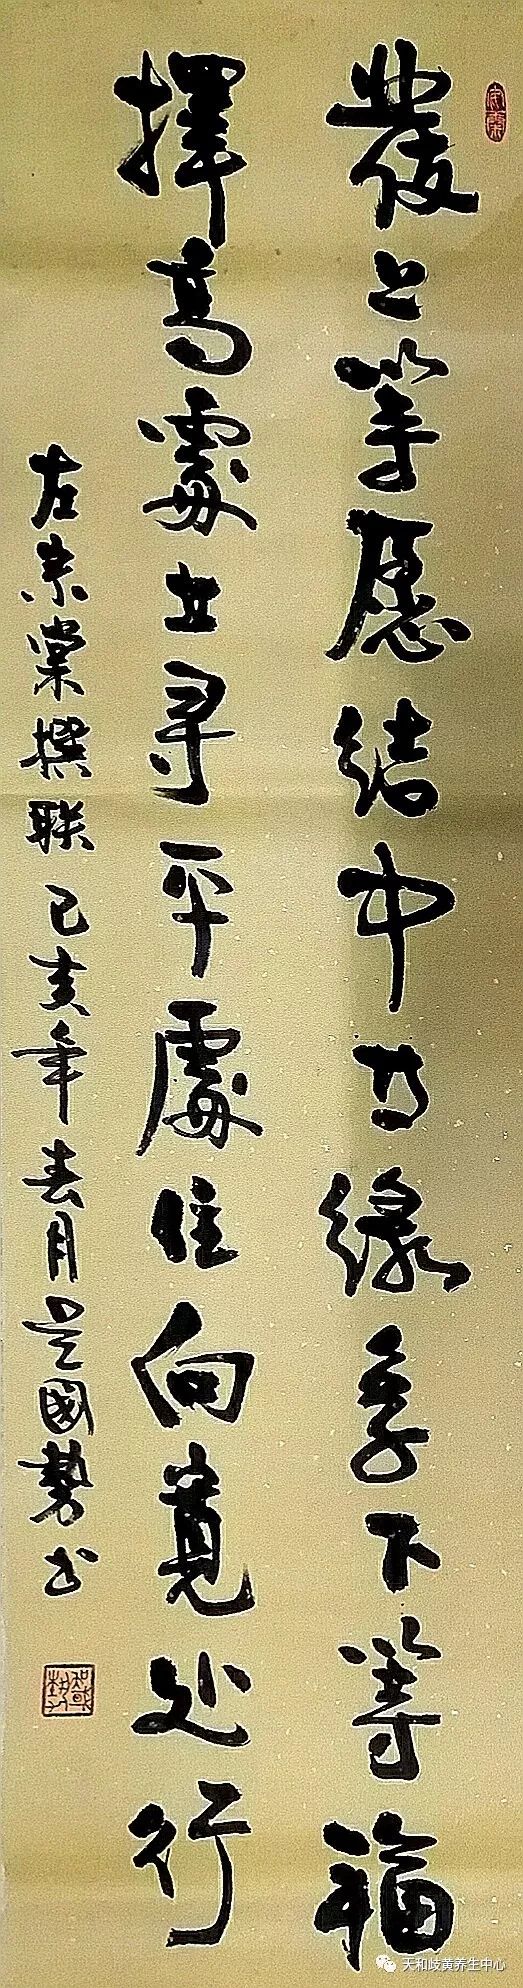 發上等愿結中等緣享下等福
擇高處立尋平處住向寬处行
左宗棠撰联 己亥年春月吴國勢书
天和歧黄养生中心